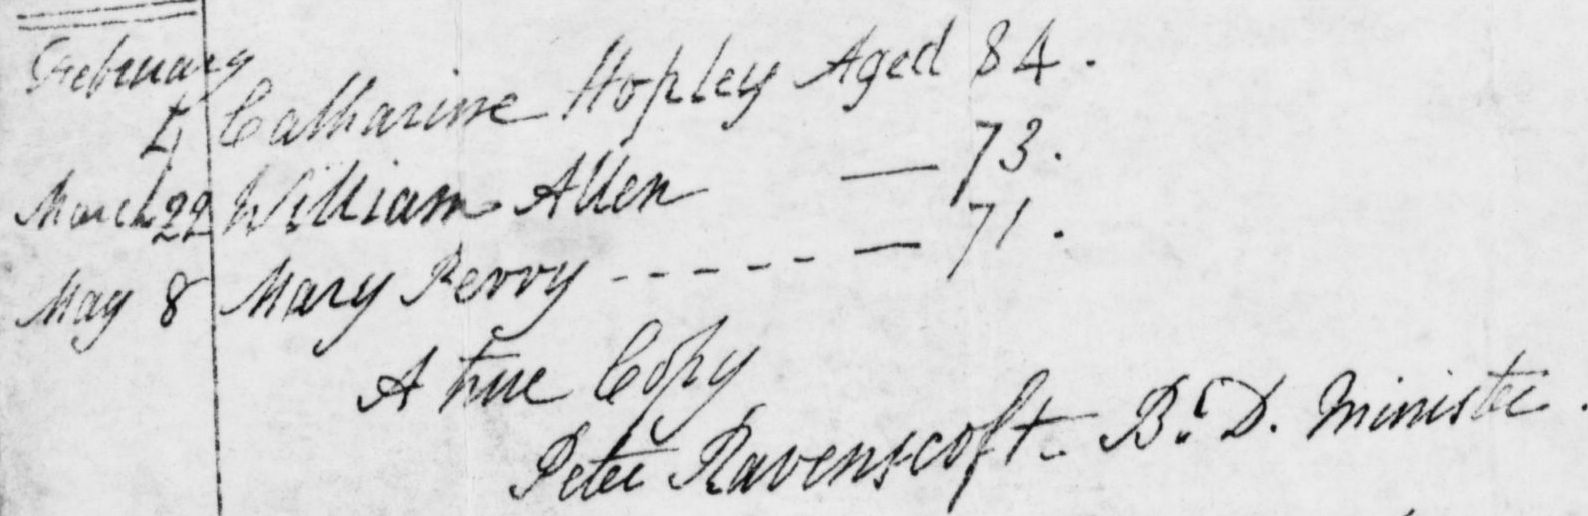 February
4 Catharine Hopley Aged 84.
March 22 William Allen — 73.
May 8 Mary Perry - - - - - — 71.
A true Copy
Peter Ravenscoft B. D. Minister.